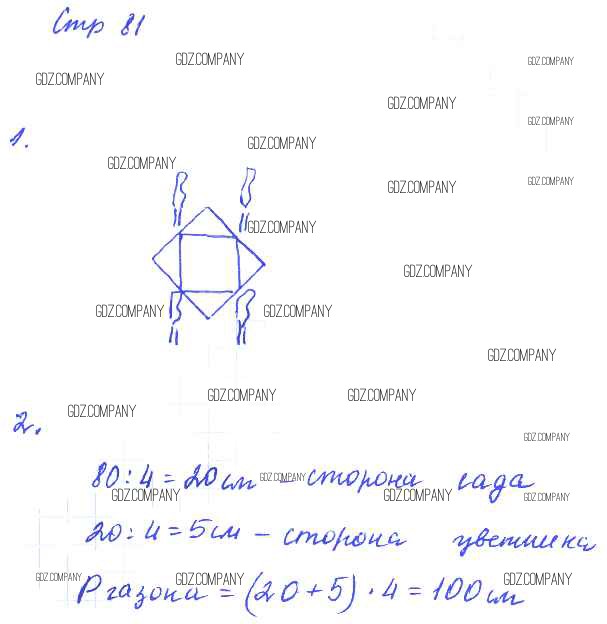 Стр 81
GDZ.COMPANY GDZ.COMPANY
GDZ.COMPANY
GDZ.COMPANY
GDZ.COMPANY
1.
GDZ.COMPANY
GDZ.COMPANY
GDZ.COMPANY GDZ.COMPANY
GDZ.COMPANY
GDZ.COMPANY
GDZ.COMPANY GDZ.COMPANY
GDZ.COMPANY
GDZ.COMPANY GDZ.COMPANY
GDZ.COMPANY
2.
GDZ.COMPANY
80 : 4 = 20 см – сторона сада
GDZ.COMPANY
GDZ.COMPANY GDZ.COMPANY GDZ.COMPANY
20 : 4 = 5 см – сторона цветника
P газона = (20 + 5) · 4 = 100 см
GDZ.COMPANY GDZ.COMPANY GDZ.COMPANY